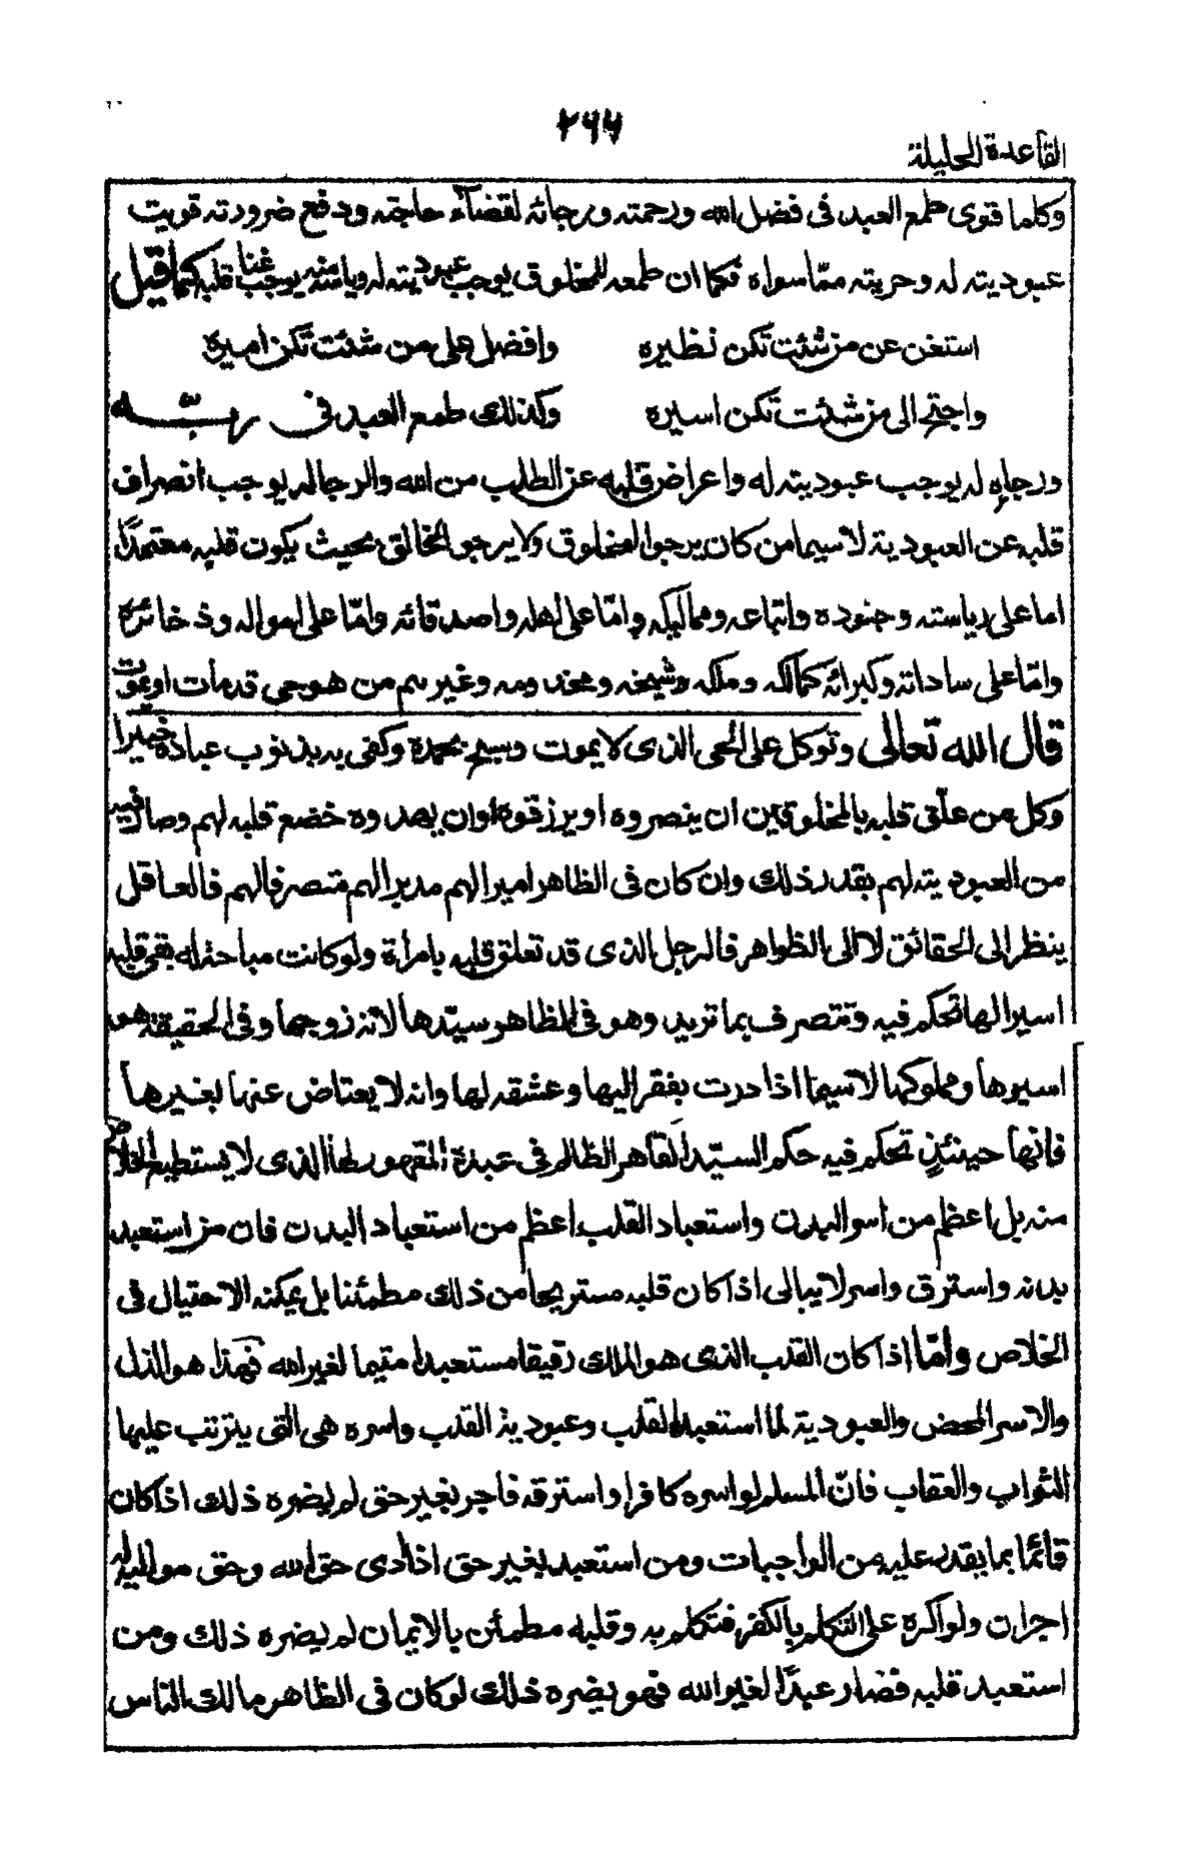 ٢٦٦
القاعدة الجليلة
وكلما قوى طمع العبد فى فضل الله ورحمته ورجائه لقضآء حاجته ودفع ضرورته قويت
عبوديته له وحريته مما سواه فكما ان طمعه للمخلوق يوجب عبوديته له وياسه منه يوجب غنا قلبه كما قيل
استغن عن من شئت تكن نظيره وافضل على من شئت تكن اميره
واحتج الى من شئت تكن اسيره وكذلك طمع العبد فى ربّــه
ورجاءه له يوجب عبوديته له واعراض قلبه عن الطلب من الله والرجا له يوجب انصراف
قلبه عن العبودية لاسيما من كان يرجوا المخلوق ولا يرجو الخالق بحيث يكون قلبه معتمدًا
اما على رياسته وجنوده واتباعه ومماليكه وامّا على اهله واصدقائه وامّا على امواله وذخائره
وامّا على ساداته وكبرائه كمالكه وملكه وشيخه ومخدومه وغيرهم ممن هو حي قد مات او يموت
قال الله تعالى وتوكل على الحى الذى لا يموت وسبح بحمده وكفى به بذنوب عباده خبيرا
وكل من علّق قلبه بالمخلوقين ان ينصروه او يرزقوه او ان يهدوه خضع قلبه لهم وصار فيه
من العبودية لهم بقدر ذلك وان كان فى الظاهر اميرا لهم مدبرا لهم متصرفا لهم فالعاقل
ينظر الى الحقائق لا الى الظواهر فالرجل الذى قد تعلق قلبه بامرأة ولو كانت مباحة له بقى قلبه
اسيرا لها تحكم فيه وتتصرف بما تريد وهو فى الظاهر سيّدها لانه زوجها وفى الحقيقة هو
اسيرها ومملوكها لاسيما اذا درت بفقر اليها وعشقه لها وانه لا يعتاض عنها بغيرها
فانها حينئذٍ تحكم فيه حكم السيّد القاهر الظالم فى عبدة المقهور لها الذى لا يستطيع الخلاص
منه بل اعظم من اسر البدن واستعباد القلب اعظم من استعباد البدن فان من استعبد
بدنه واسترق واسر لا يبالى اذا كان قلبه مستريحا من ذلك مطمئنا بل يمكنه الاحتيال فى
الخلاص وأمّا اذا كان القلب الذى هو الملك رقيقا مستعبدا متيما لغير الله فهذا هو الذل
والاسر المحض والعبودية لما استعبد القلب وعبودية القلب واسره هى التى يترتب عليها
الثواب والعقاب فانّ المسلم لو اسره كافر او استرقه فاجر بغير حق لم يضره ذلك اذا كان
قائما بما يقدر عليه من الواجبات ومن استعبد بغير حق اذا أدى حق الله وحق مواليه له
اجران ولو اكره على التكلم بالكفر فتكلم به وقلبه مطمئن بالايمان لم يضره ذلك ومن
استعبد قلبه فصار عبدًا لغير الله فهو يضره ذلك لو كان فى الظاهر مالك الناس